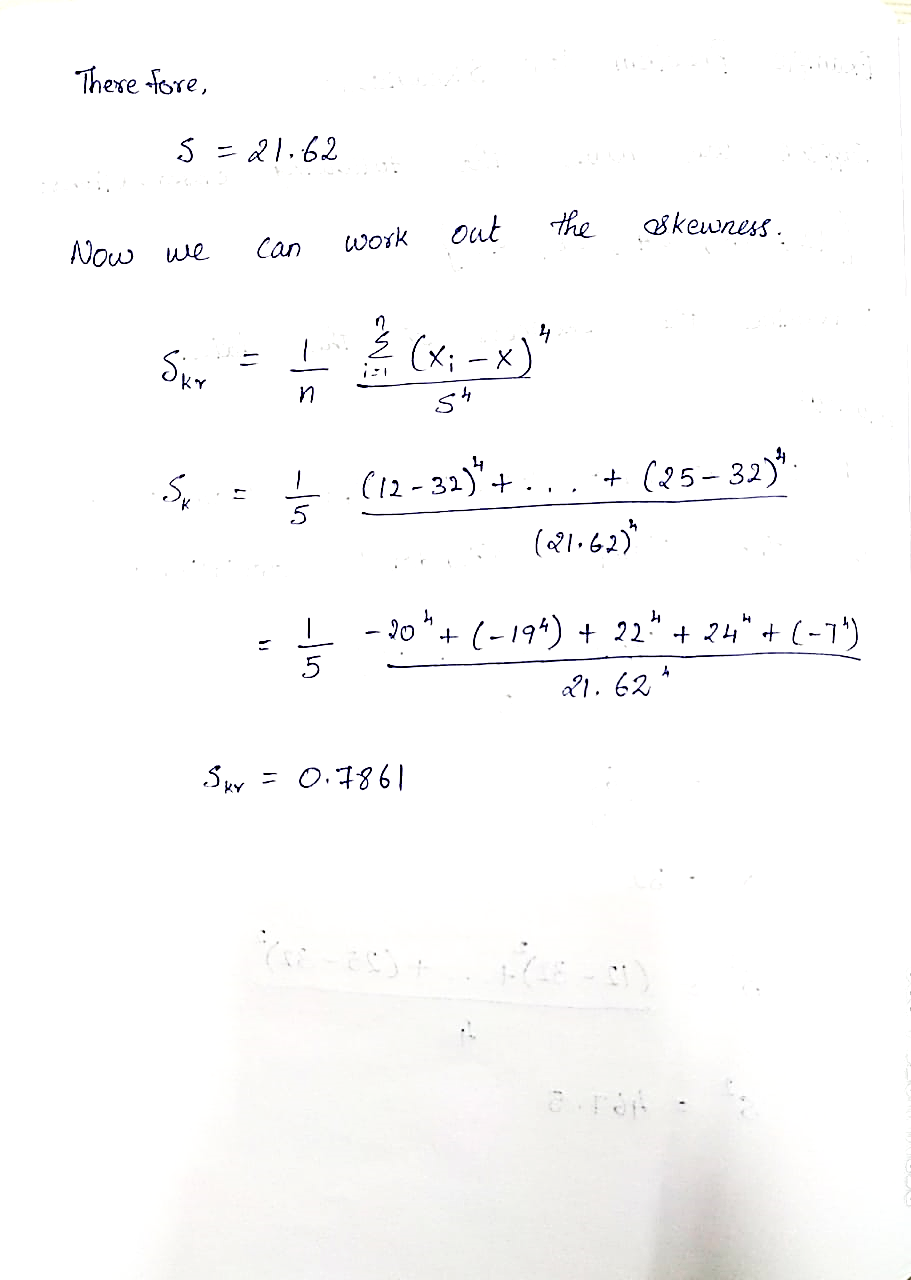 Therefore,
S = 21.62
Now we can work out the skewness.
Skr = 1/n Σ(i=1 to n) (xi - x)⁴ / S⁴
Sk = 1/5 (12-32)⁴ + . . . + (25-32)⁴ / (21.62)⁴
= 1/5 -20⁴ + (-19⁴) + 22⁴ + 24⁴ + (-7⁴) / 21.62⁴
Skr = 0.7861